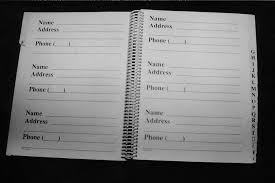 Name
Address
Phone (      )
Name
Address
Phone (      )
Name
Address
Phone (      )
Name
Address
Phone (      )
Name
Address
Phone (      )
Name
Address
Phone (      )
G
H
I
J
K
L
M
N
O
P
Q
R
S
T